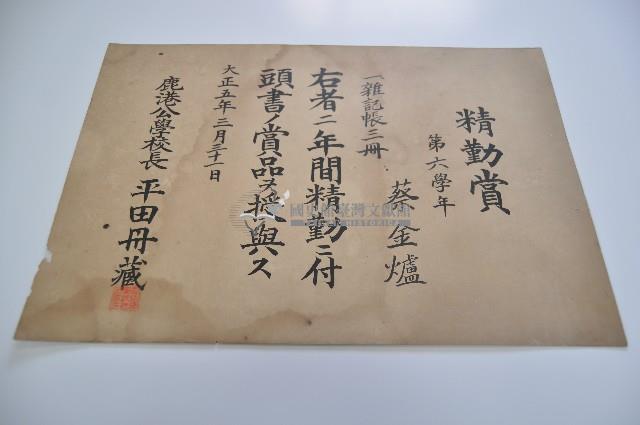 精勤賞
第六學年
蔡金爐
一雜記帳三冊
右者二年間精勤ニ付
頭書ノ賞品ヲ授與ス
大正五年三月三十一日
鹿港公學校長 平田丹藏
國史館臺灣文獻館